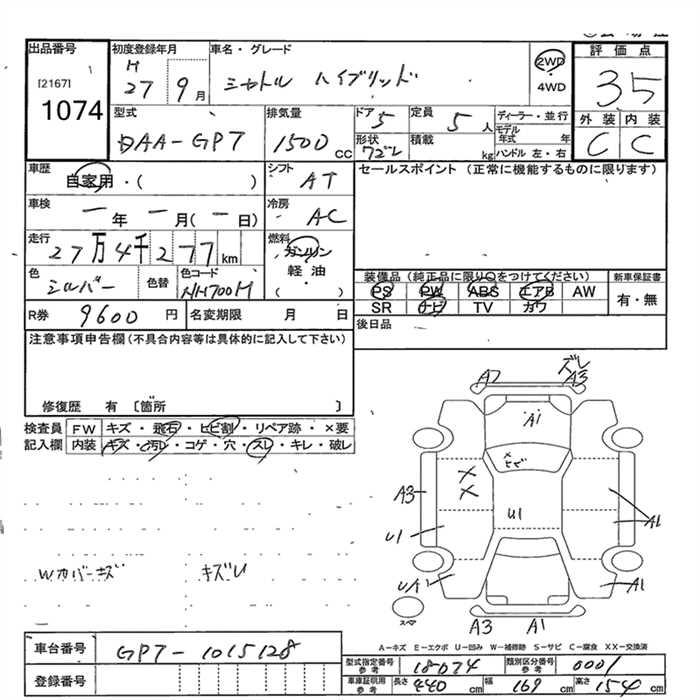 出品番号
[2167]
1074
初度登録年月
H 27 年 9 月
車名・グレード
シャトル ハイブリッド
2WD
4WD
評価点
3 5
外装 内装
C C
型式
DAA-GP7
排気量
1500 cc
ドア 5
形状 ワゴン
定員 5 人
積載 kg
ディーラー・並行
モデル年式 年
ハンドル 左・右
車歴
自家用・( )
シフト AT
セールスポイント (正常に機能するものに限ります)
車検
一年 一月(一日)
冷房 AC
走行
27万4千277km
燃料
ガソリン
軽油
( )
色
シルバー
色替
色コード
NH700M
装備品 (純正品に限り〇をつけてください)
新車保証書
PS PW ABS エアB AW
SR ナビ TV カワ
有・無
R券 9600 円
名変期限 月 日
後日品
注意事項申告欄(不具合内容等は具体的に記入して下さい)
修復歴 有 〔箇所 〕
検査員 FW キズ・飛石・ヒビ割・リペア跡・×要
記入欄 内装 キズ・汚レ・コゲ・穴・スレ・キレ・破レ
ズレ
A2 A3
A1
×
ヒビ
×
×
A3
U1
U1
A1
U/A1
A1
Wカバーキズ
キズレ
スペア
A3 A1
A-キズ E-エクボ U-凹み W-補修跡 S-サビ C-腐食 XX-交換済
車台番号 GP7-1015128
登録番号
型式指定番号 参考 18074
類別区分番号 参考 0001
車庫証明用 参考 長さ 440 cm 幅 169 cm 高さ 154 cm